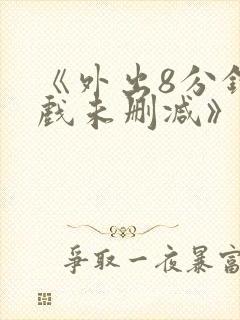 《外出8分钟
戏未删减》
争取一夜暴富